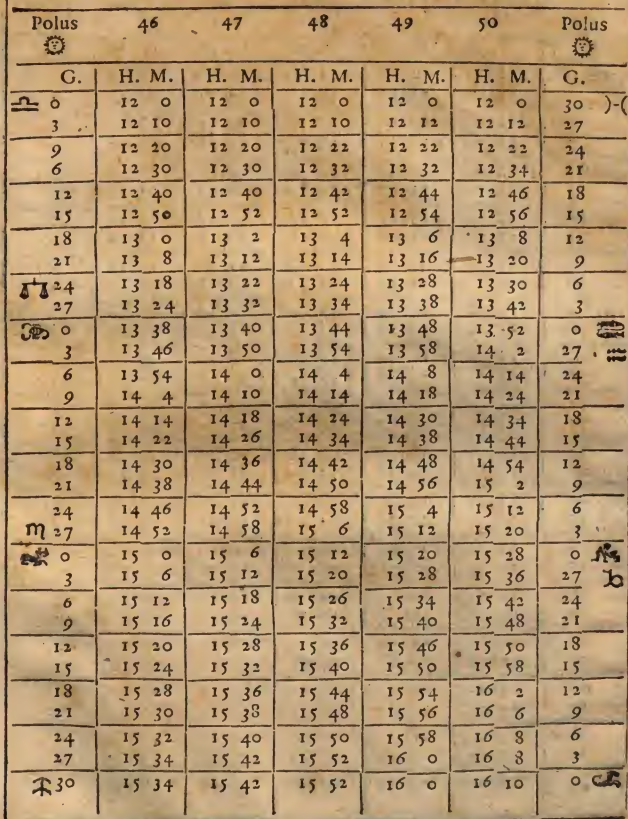 Polus 46 47 48 49 50 Polus
G. H. M. H. M. H. M. H. M. H. M. G.
♎ 0 12 0 12 0 12 0 12 0 12 0 30 )-(
3 12 10 12 10 12 10 12 12 12 12 27
9 12 20 12 20 12 22 12 22 12 22 24
6 12 30 12 30 12 32 12 32 12 34 21
12 12 40 12 40 12 42 12 44 12 46 18
15 12 50 12 52 12 52 12 54 12 56 15
18 13 0 13 2 13 4 13 6 13 8 12
21 13 8 13 12 13 14 13 16 13 20 9
24 13 18 13 22 13 24 13 28 13 30 6
27 13 24 13 32 13 34 13 38 13 42 3
0 13 38 13 40 13 44 13 48 13 52 0
3 13 46 13 50 13 54 13 58 14 2 27
6 13 54 14 0 14 4 14 8 14 14 24
9 14 4 14 10 14 14 14 18 14 24 21
12 14 14 14 18 14 24 14 30 14 34 18
15 14 22 14 26 14 34 14 38 14 44 15
18 14 30 14 36 14 42 14 48 14 54 12
21 14 38 14 44 14 50 14 56 15 2 9
24 14 46 14 52 14 58 15 4 15 12 6
♏ 27 14 52 14 58 15 6 15 12 15 20 3
0 15 0 15 6 15 12 15 20 15 28 0
3 15 6 15 12 15 20 15 28 15 36 27
6 15 12 15 18 15 26 15 34 15 42 24
9 15 16 15 24 15 32 15 40 15 48 21
12 15 20 15 28 15 36 15 46 15 50 18
15 15 24 15 32 15 40 15 50 15 58 15
18 15 28 15 36 15 44 15 54 16 2 12
21 15 30 15 38 15 48 15 56 16 6 9
24 15 32 15 40 15 50 15 58 16 8 6
27 15 34 15 42 15 52 16 0 16 8 3
30 15 34 15 42 15 52 16 0 16 10 0